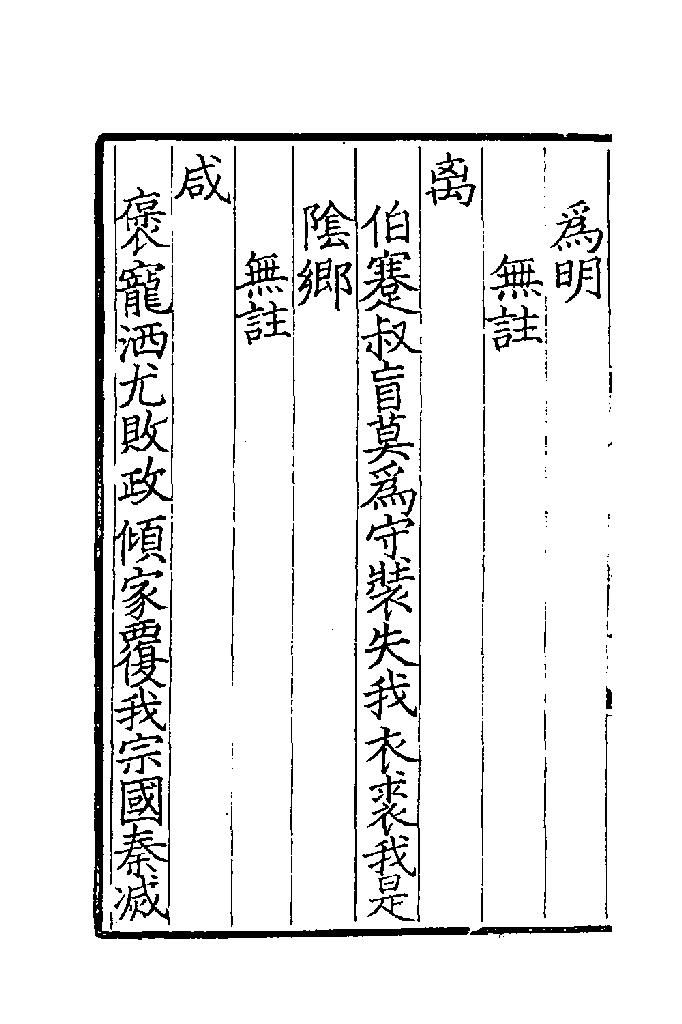 為明
無註
离
伯蹇叔盲莫為守裝失我衣裘我是
陰鄉
無註
咸
褒寵洒尤敗政傾家覆我宗國秦滅